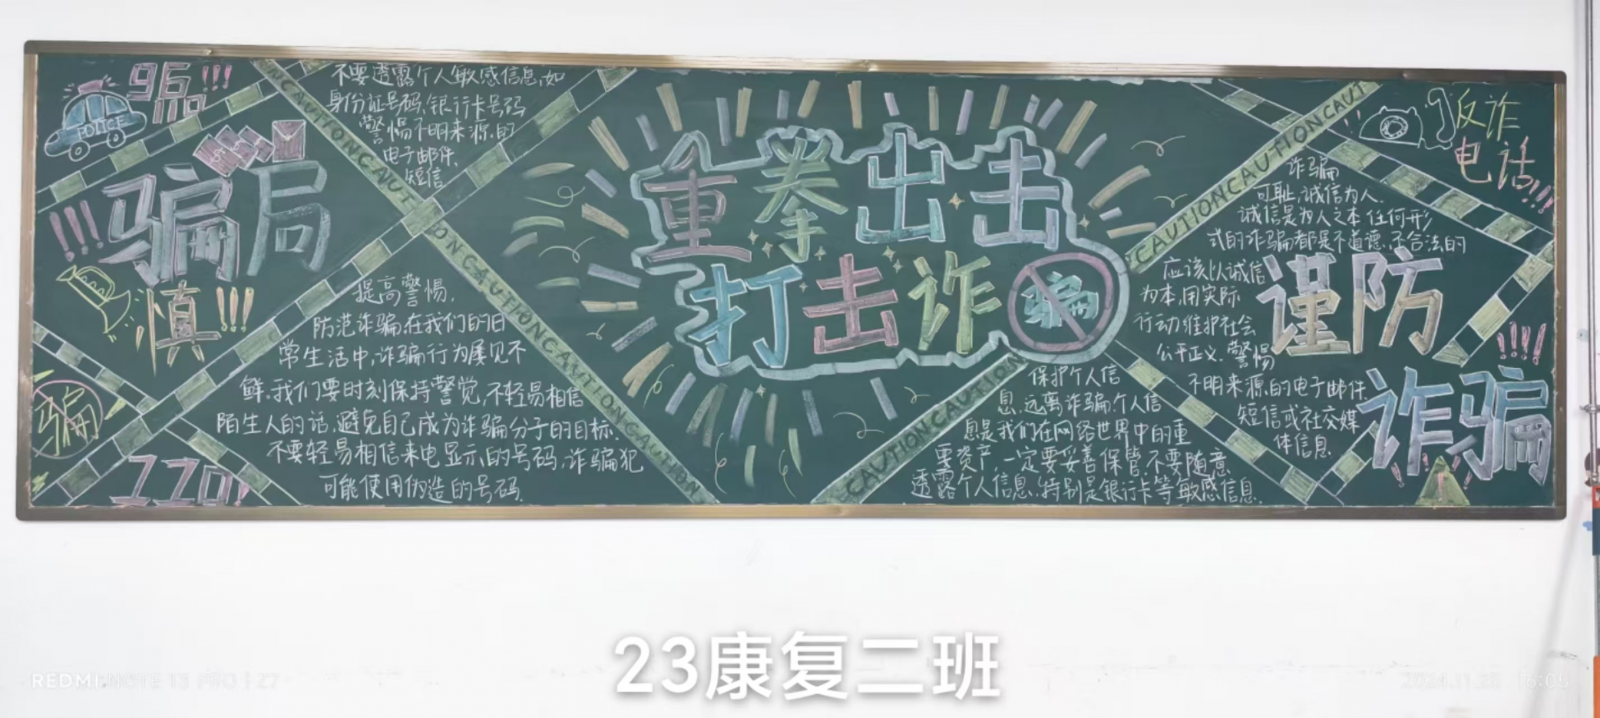 96110!!!
POLICE
!!!骗局
慎!!!
骗
110!
不要透露个人敏感信息,如
身份证号码,银行卡号码
警惕不明来源的
电子邮件,
短信
提高警惕,
防范诈骗在我们的日
常生活中,诈骗行为屡见不
鲜,我们要时刻保持警觉,不轻易相信
陌生人的话,避免自己成为诈骗分子的目标.
不要轻易相信来电显示的号码,诈骗犯
可能使用伪造的号码.
CAUTIONCAUT
IONCAUTIONCAUTIONCAUTIONCAUTION
重拳出击
打击诈骗
CAUTIONCAUTIONCAUT
CAUTIONCAUTION
反诈
电话!!!!
诈骗
可耻,诚信为人.
诚信是为人之本 任何形
式的诈骗都是不道德,不合法的
应该以诚信
为本,用实际
行动维护社会
公平正义.警惕
不明来源的电子邮件.
短信或社交媒
体信息.
谨防
!!!!
诈骗
!
保护个人信
息,远离诈骗,个人信
息是我们在网络世界中的重
要资产,一定要妥善保管,不要随意
透露个人信息,特别是银行卡等敏感信息.
23康复二班
REDMI NOTE 13 PRO | Z7